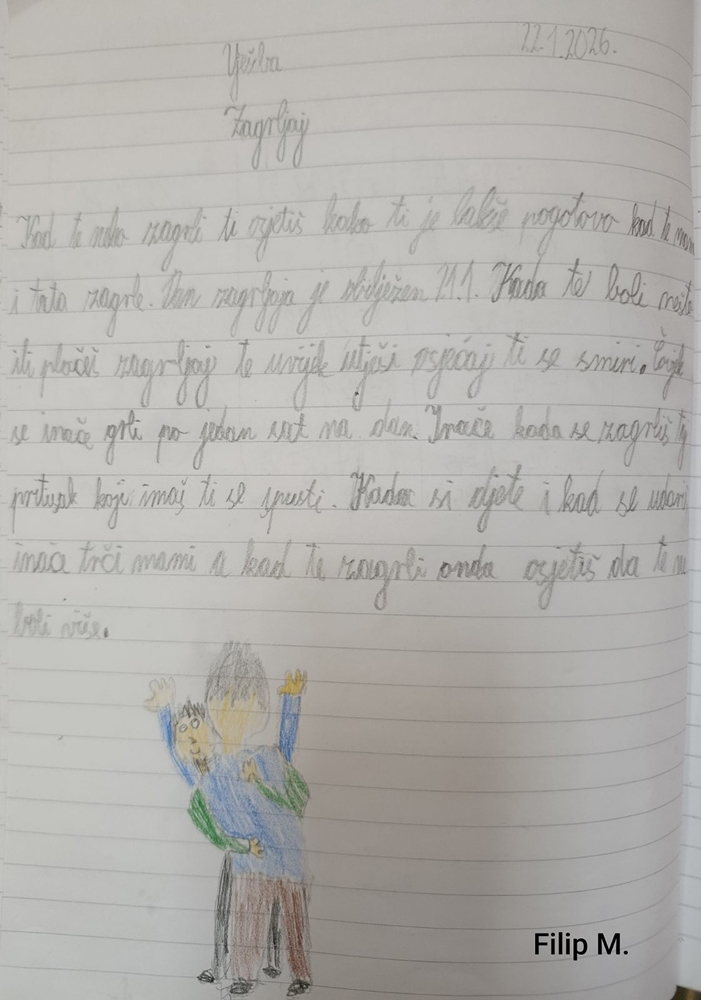 22.1.2026.
Vježba
Zagrljaj
Kad te neko zagrli ti osjetiš kako ti je lakše pogotovo kad te mam
i tata zagrle. Dan zagrljaja je obilježen 21.1. Kada te boli nešto
ili plačeš zagrljaj te uvijek utješi osjećaj ti se smiri. Čovjek
se inače grli po jedan sat na dan. Inače kada se zagrliš tj
pritisak koji imaš ti se spusti. Kada si dijete i kad se udari
inača trči mami a kad te zagrli onda osjetiš da te ne
boli više.
Filip M.